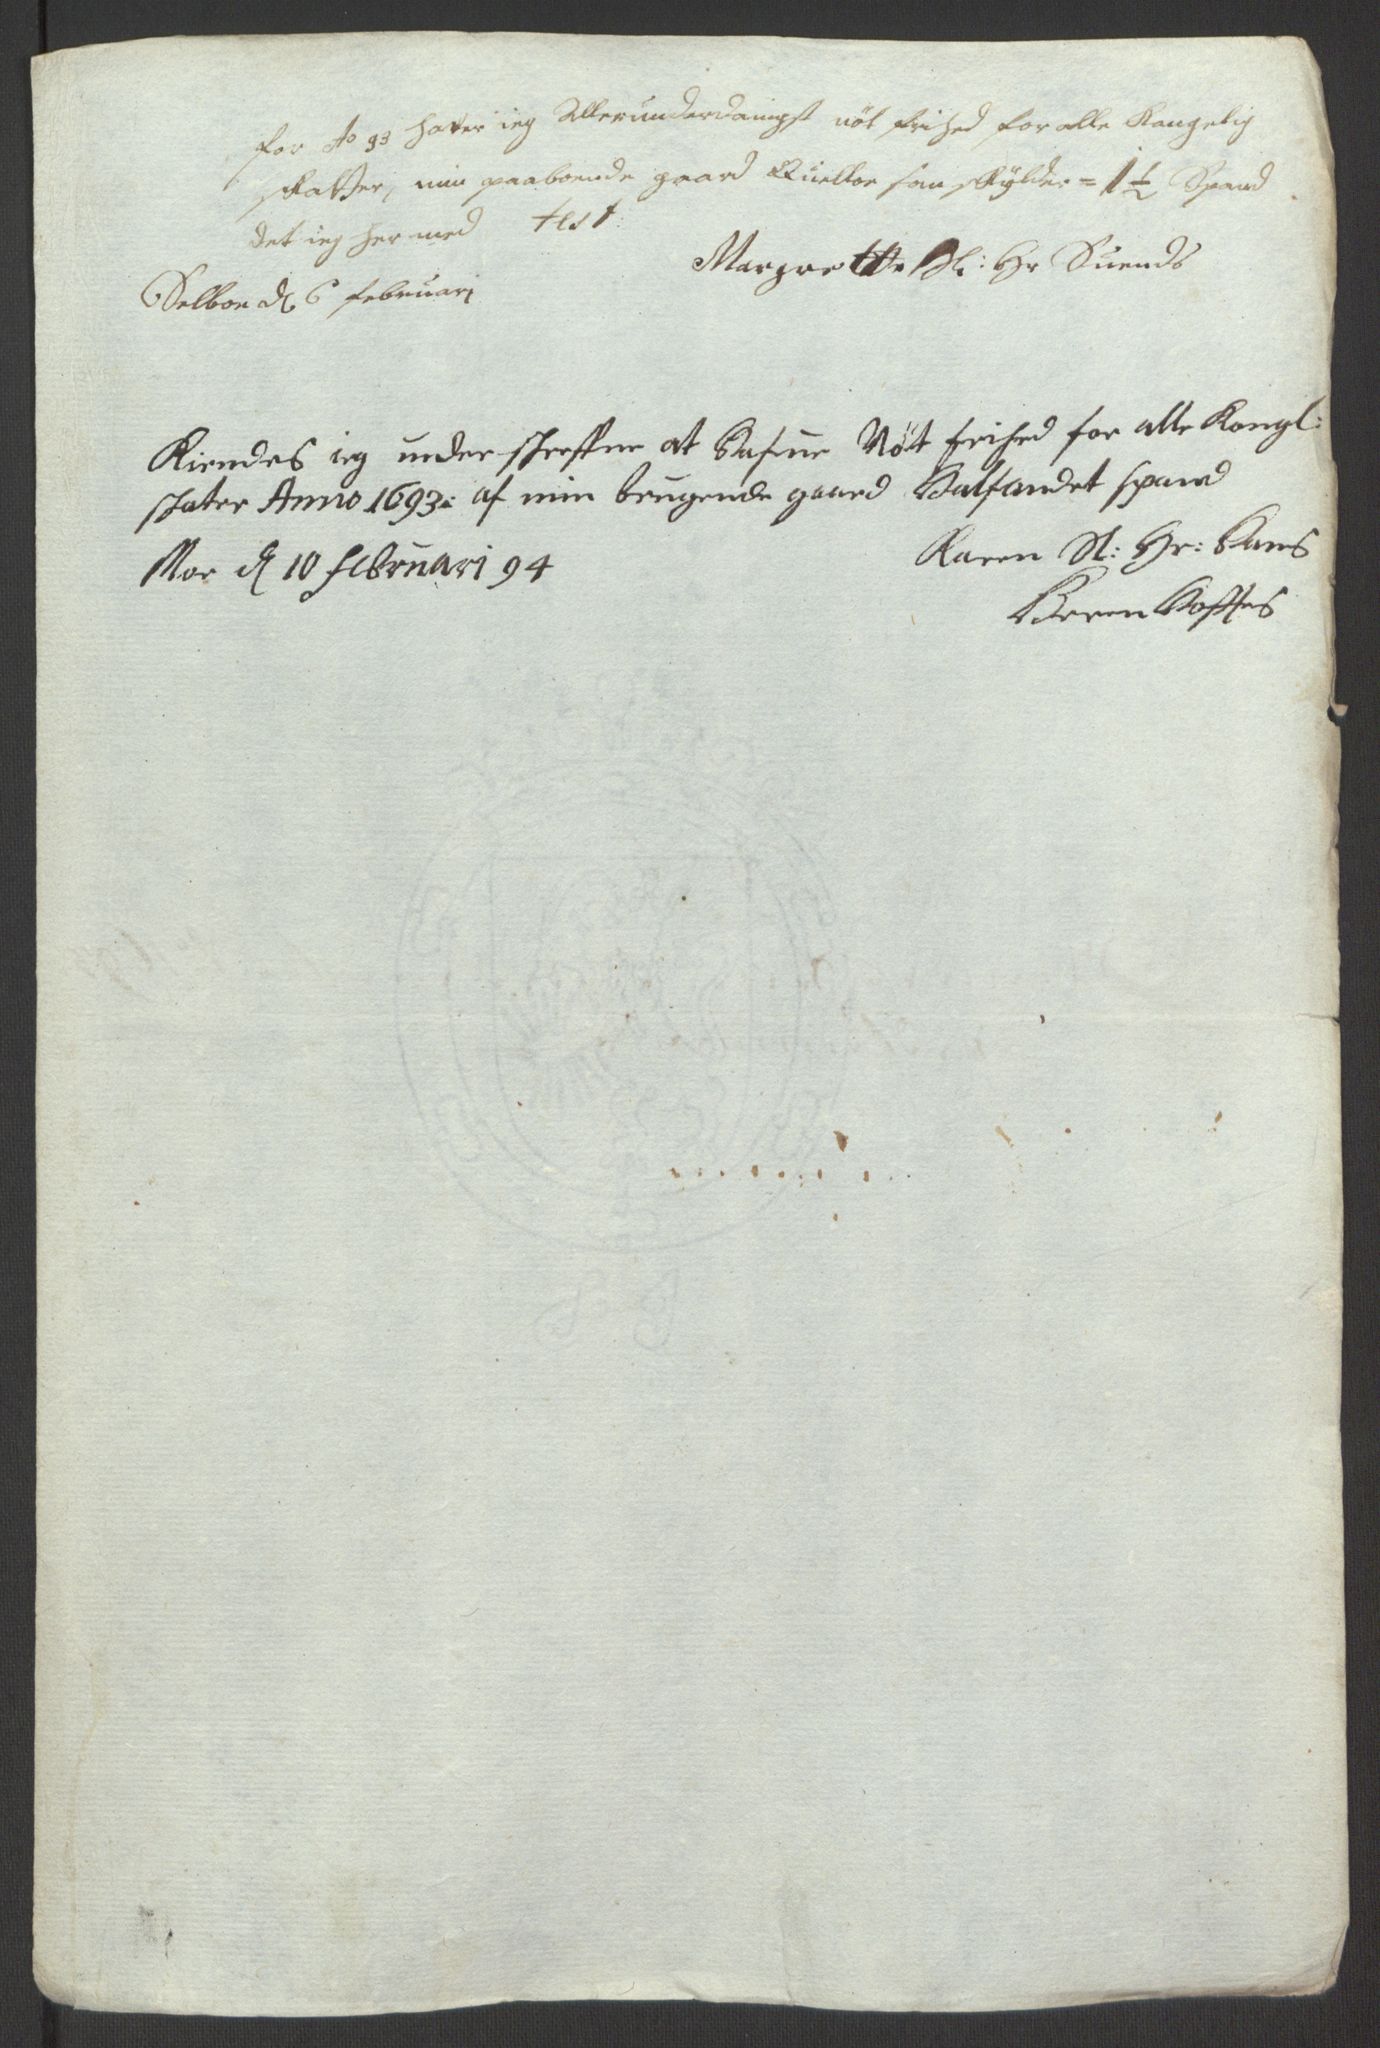 for Ao 93 hafver ieg Allerunderdanigst nöt frihed for alle Kongelig
skatter, min paaboende gaard Quelloe som skÿlder = 1½ Spand
det ieg her med test:
Margrette Sl: Hr Suends
Selboe d 6 februari
Kiendes ieg underschrefne at hafue Nöt frihed for alle Kongl:
skater Anno 1693: af min brugende gaard halfandet spand
Moe d 10 februari 94
Karen Sl: Hr: Hans